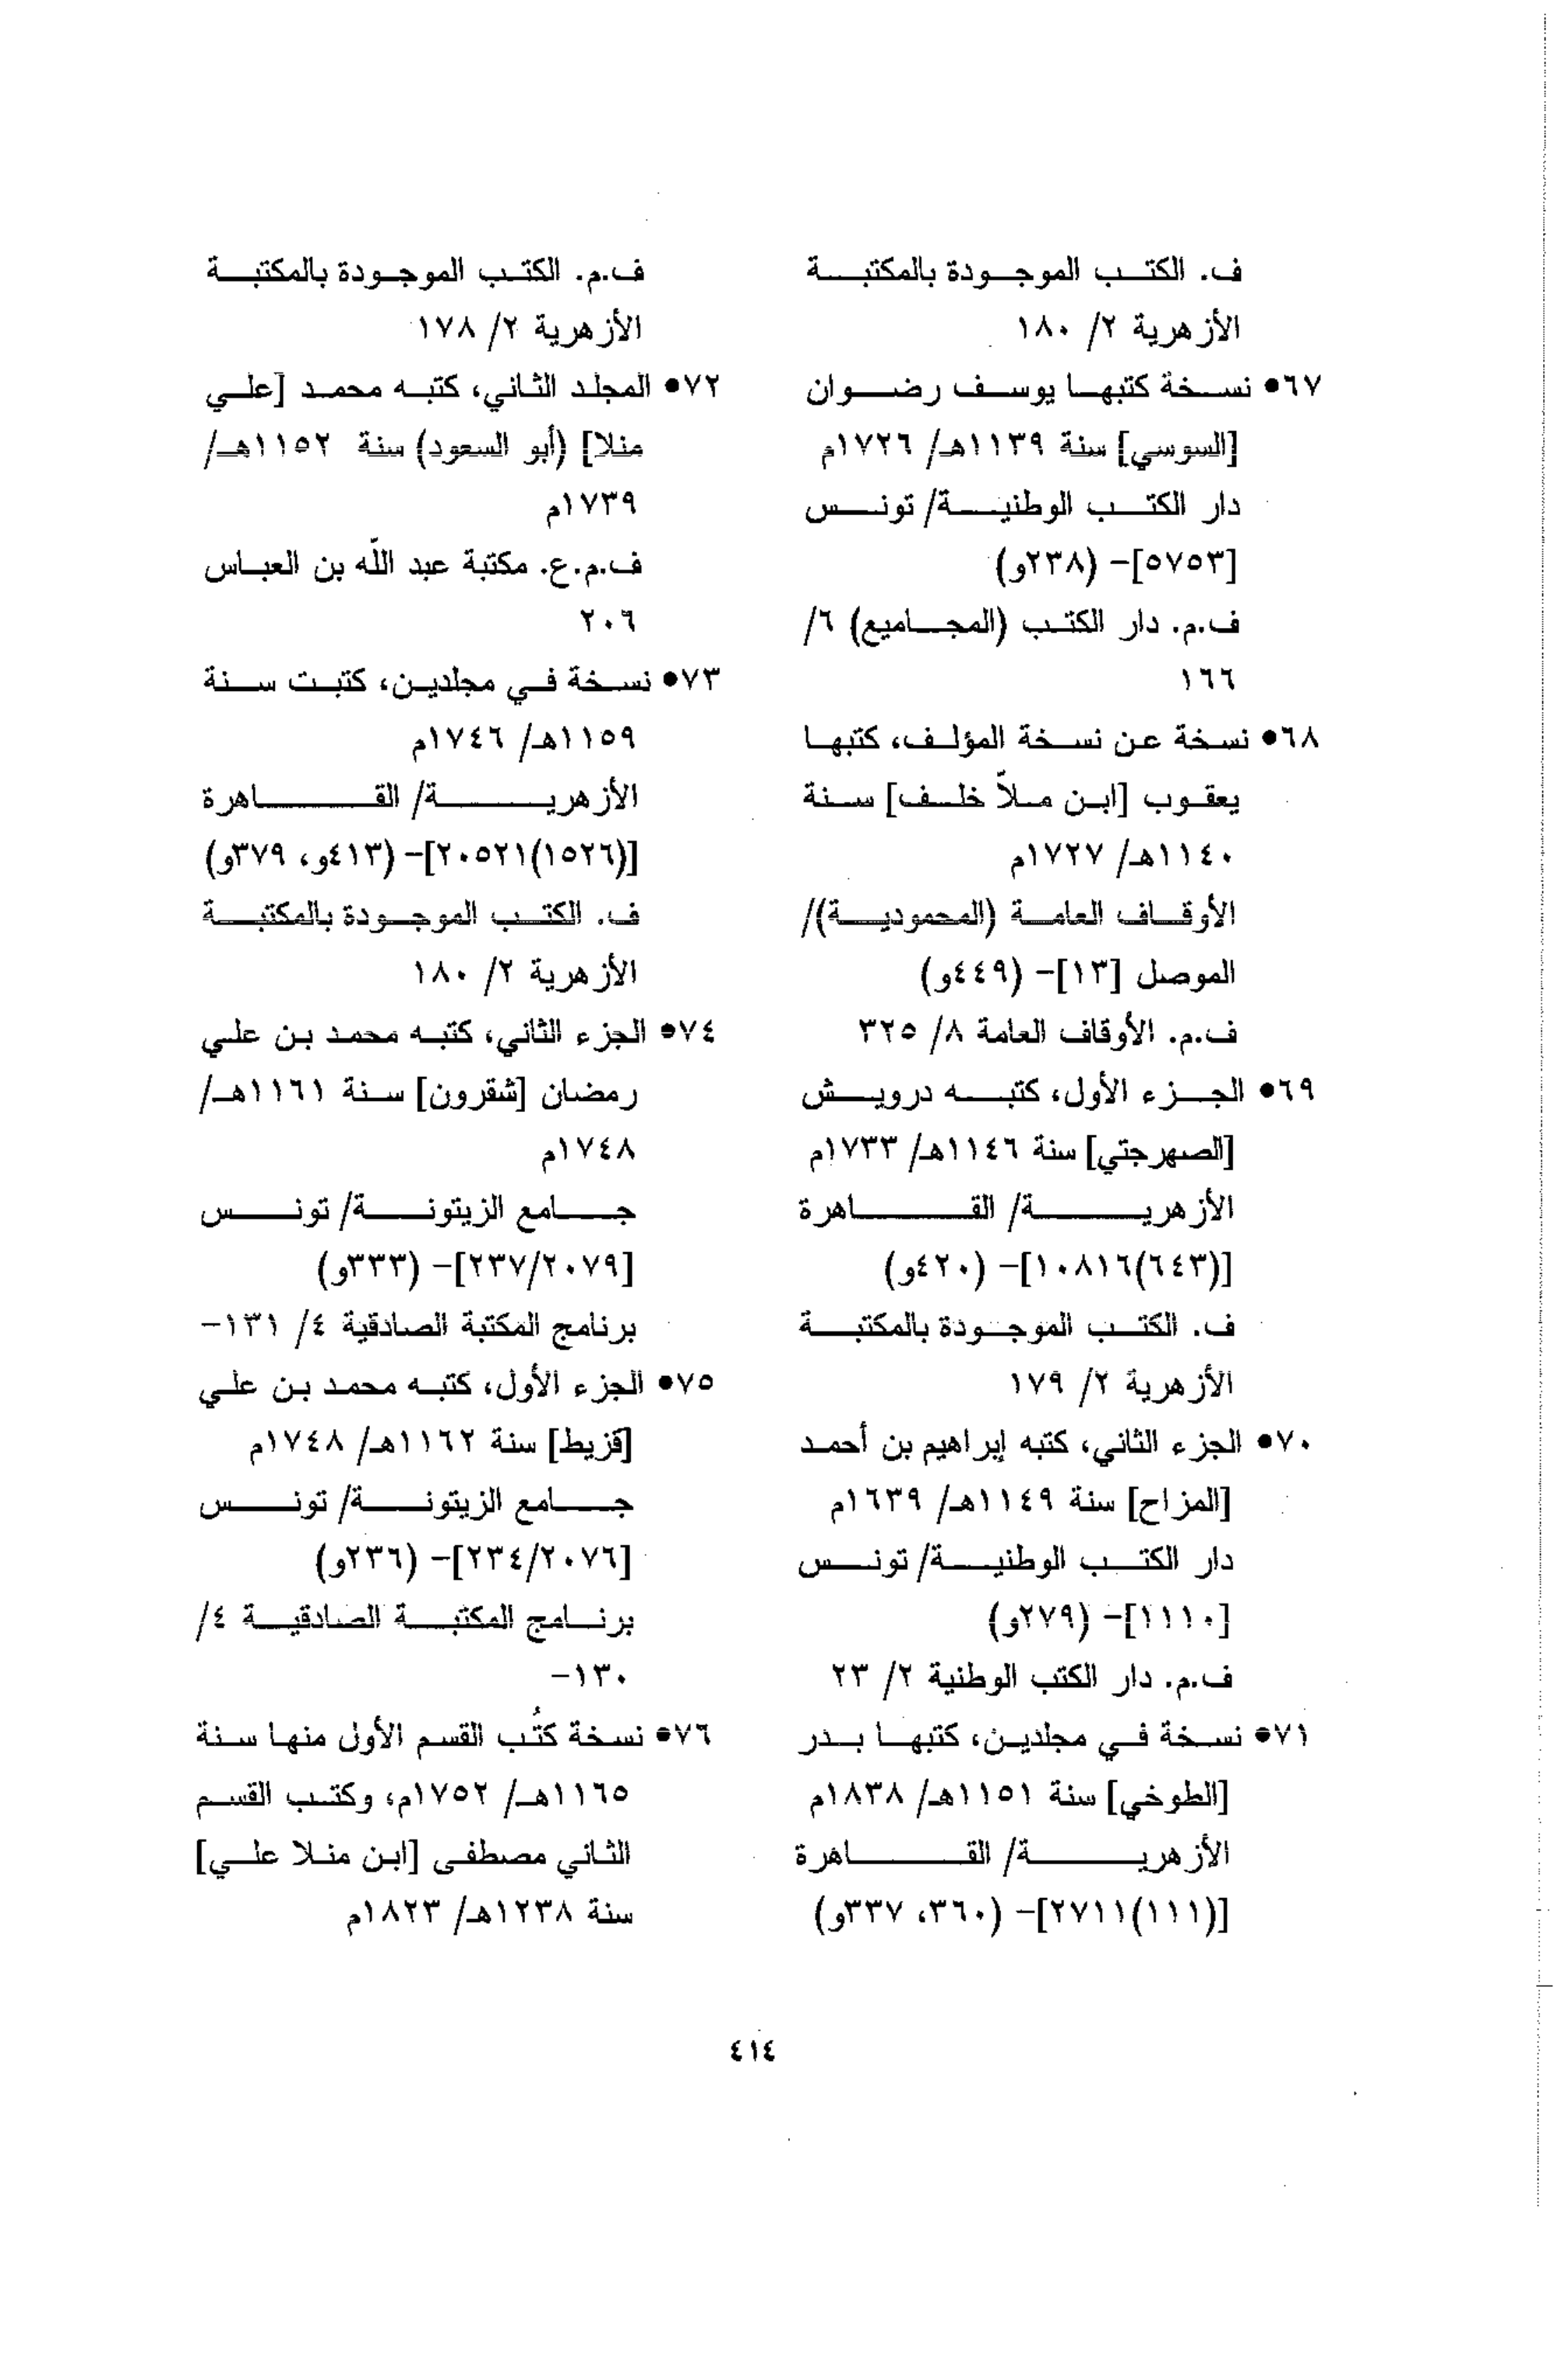 ف. الكتب الموجودة بالمكتبة
الأزهرية ٢/ ١٨٠
٦٧● نسخة كتبها يوسف رضوان
[السوسي] سنة ١١٣٩هـ/ ١٧٢٦م
دار الكتب الوطنية/ تونس
[٥٧٥٣]- (٢٣٨و)
ف.م. دار الكتب (المجاميع) ٦/
١٦٦
٦٨● نسخة عن نسخة المؤلف، كتبها
يعقوب [ابن ملاّ خلف] سنة
١١٤٠هـ/ ١٧٢٧م
الأوقاف العامة (المحمودية)/
الموصل [١٣]- (٤٤٩و)
ف.م. الأوقاف العامة ٨/ ٣٢٥
٦٩● الجزء الأول، كتبه درويش
[الصهرجتي] سنة ١١٤٦هـ/ ١٧٣٣م
الأزهرية/ القاهرة
[(٦٤٣)١٠٨١٦]- (٤٢٠و)
ف. الكتب الموجودة بالمكتبة
الأزهرية ٢/ ١٧٩
٧٠● الجزء الثاني، كتبه إبراهيم بن أحمد
[المزاح] سنة ١١٤٩هـ/ ١٦٣٩م
دار الكتب الوطنية/ تونس
[١١١٠]- (٢٧٩و)
ف.م. دار الكتب الوطنية ٢/ ٢٣
٧١● نسخة في مجلدين، كتبها بدر
[الطوخي] سنة ١١٥١هـ/ ١٨٣٨م
الأزهرية/ القاهرة
[(١١١)٢٧١١]- (٣٦٠، ٣٣٧و)
ف.م. الكتب الموجودة بالمكتبة
الأزهرية ٢/ ١٧٨
٧٢● المجلد الثاني، كتبه محمد [علي
منلا] (أبو السعود) سنة ١١٥٢هـ/
١٧٣٩م
ف.م.ع. مكتبة عبد اللّه بن العباس
٢٠٦
٧٣● نسخة في مجلدين، كتبت سنة
١١٥٩هـ/ ١٧٤٦م
الأزهرية/ القاهرة
[(١٥٢٦)٢٠٥٢١]- (٤١٣و، ٣٧٩و)
ف. الكتب الموجودة بالمكتبة
الأزهرية ٢/ ١٨٠
٧٤● الجزء الثاني، كتبه محمد بن علي
رمضان [شقرون] سنة ١١٦١هـ/
١٧٤٨م
جامع الزيتونة/ تونس
[٢٣٧/٢٠٧٩]- (٣٣٣و)
برنامج المكتبة الصادقية ٤/ ١٣١-
٧٥● الجزء الأول، كتبه محمد بن علي
[قزيط] سنة ١١٦٢هـ/ ١٧٤٨م
جامع الزيتونة/ تونس
[٢٣٤/٢٠٧٦]- (٢٣٦و)
برنامج المكتبة الصادقية ٤/
١٣٠-
٧٦● نسخة كتُب القسم الأول منها سنة
١١٦٥هـ/ ١٧٥٢م، وكتب القسم
الثاني مصطفى [ابن منلا علي]
سنة ١٢٣٨هـ/ ١٨٢٣م
٤١٤